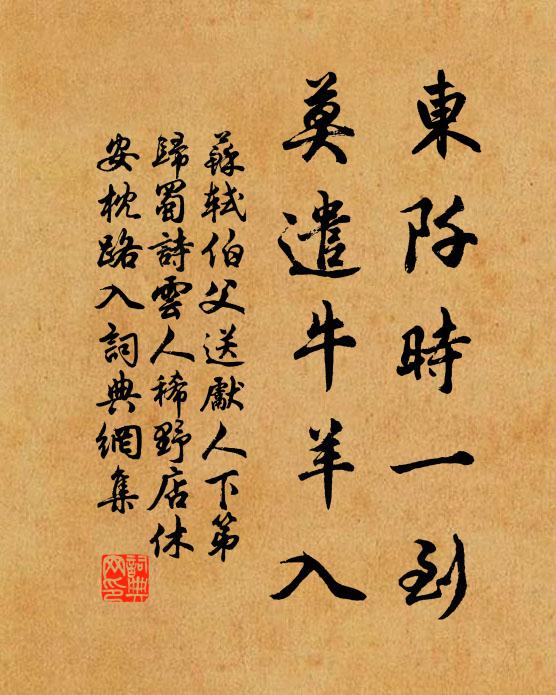 東阡時一到
莫遣牛羊入
蘇軾伯父送獻人下第
歸蜀詩雲人稀野店休
安枕路入詞典網集
詞典
网印